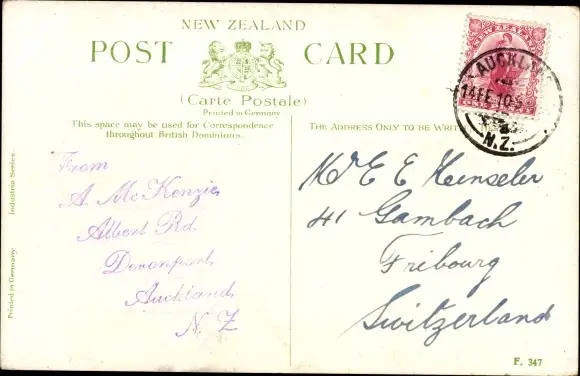 NEW ZEALAND
POST CARD
(Carte Postale)
Printed in Germany
This space may be used for Correspondence
throughout British Dominions.
THE ADDRESS ONLY TO BE WRITTEN
NEW ZEALAND
AUCKLAND
14 FE 10
N.Z.
From
A. McKenzie
Albert Rd.
Devonport,
Auckland,
N. Z
E E Henseler
41 Gambach
Fribourg
Switzerland
Industrie Series.
Printed in Germany
F. 347